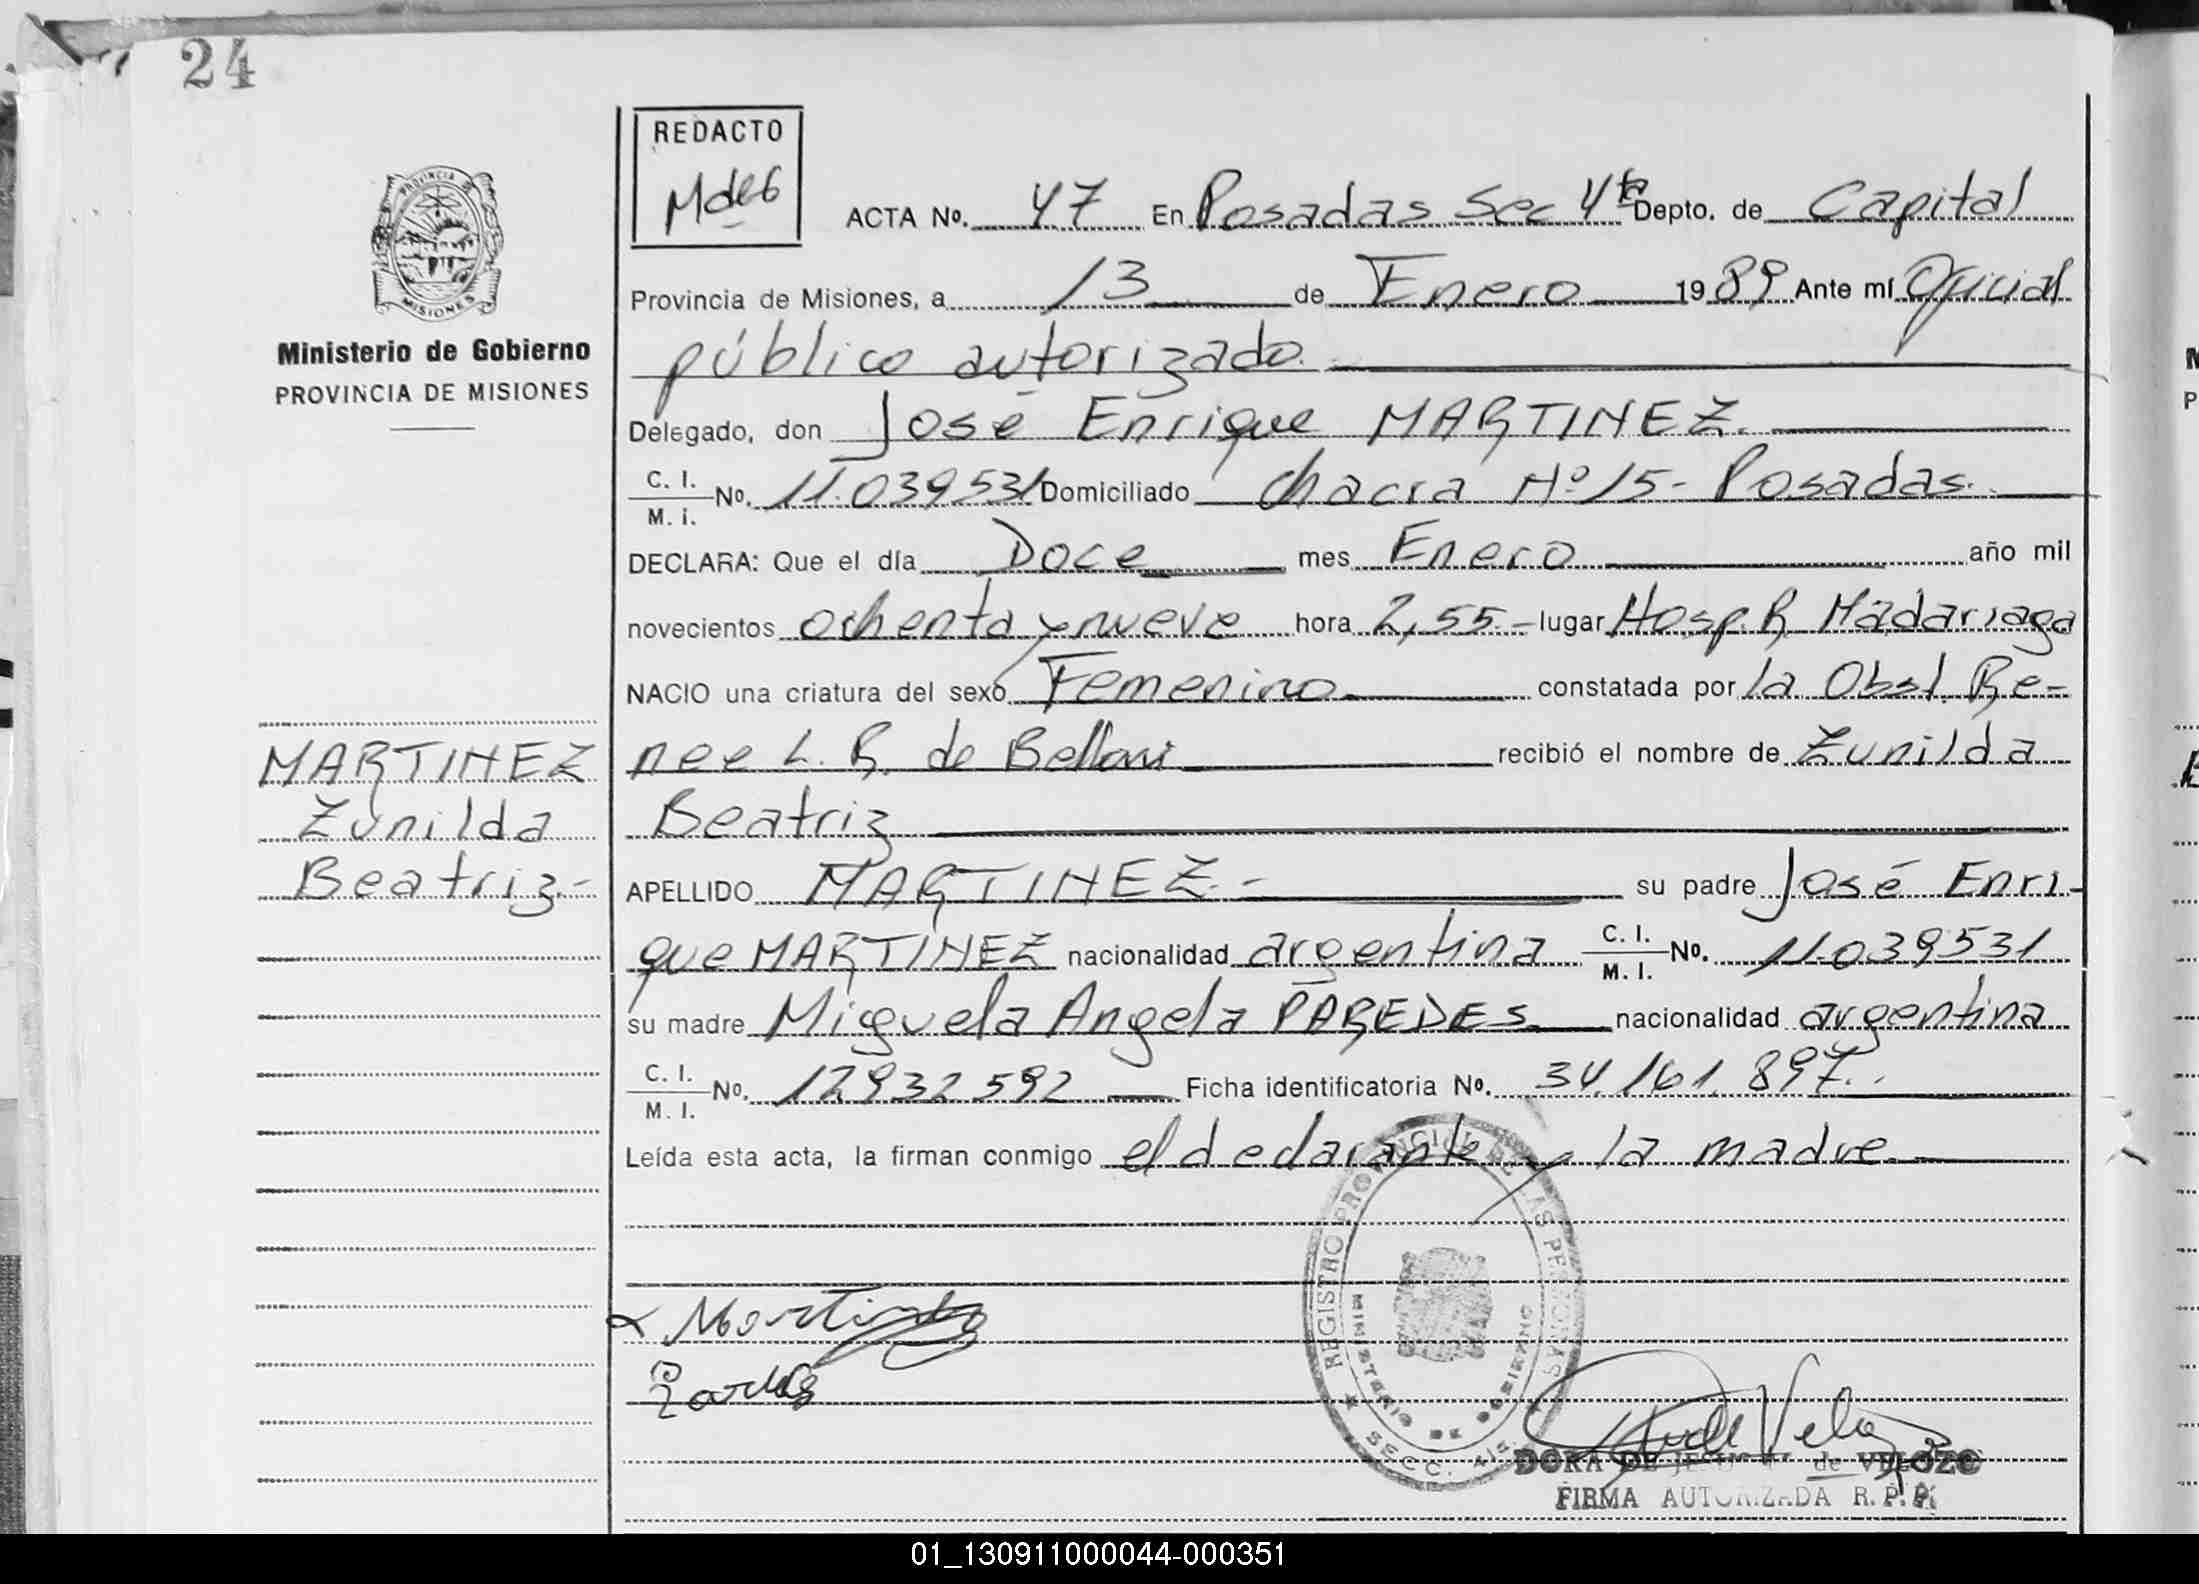 24
REDACTO
PROVINCIA DE
MISIONES
Ministerio de Gobierno
PROVINCIA DE MISIONES
ACTA No. 47 En Posadas Sec 4ta Depto. de Capital
Provincia de Misiones, a 13 de Enero 1989 Ante mí Oficial
público autorizado.
Delegado, don José Enrique MARTINEZ.
C. I. / M. i. No. 11.039531 Domiciliado Chacra Nº 15 - Posadas.
DECLARA: Que el día Doce mes Enero año mil
novecientos ochenta y nueve hora 2,55.- lugar Hosp. R. Madariaga
NACIO una criatura del sexo Femenino constatada por la Obst. Re-
nee L. R. de recibió el nombre de Zunilda
Beatriz
MARTINEZ
Zunilda
Beatriz.-
APELLIDO MARTINEZ.- su padre José Enri-
que MARTINEZ nacionalidad argentina C. I. / M. I. No. 11.039531
su madre Miguela Angela PAREDES. nacionalidad argentina
C. I. / M. I. No. 12932592 Ficha identificatoria No. 34.161.897..
Leída esta acta, la firman conmigo el declarante y la madre.
REGISTRO PROVINCIAL DE LAS PERSONAS
MINISTERIO DE GOBIERNO
SECC. 4ta.
DORA DE de VELOZO
FIRMA AUTORIZADA R. P. P.
01_130911000044-000351